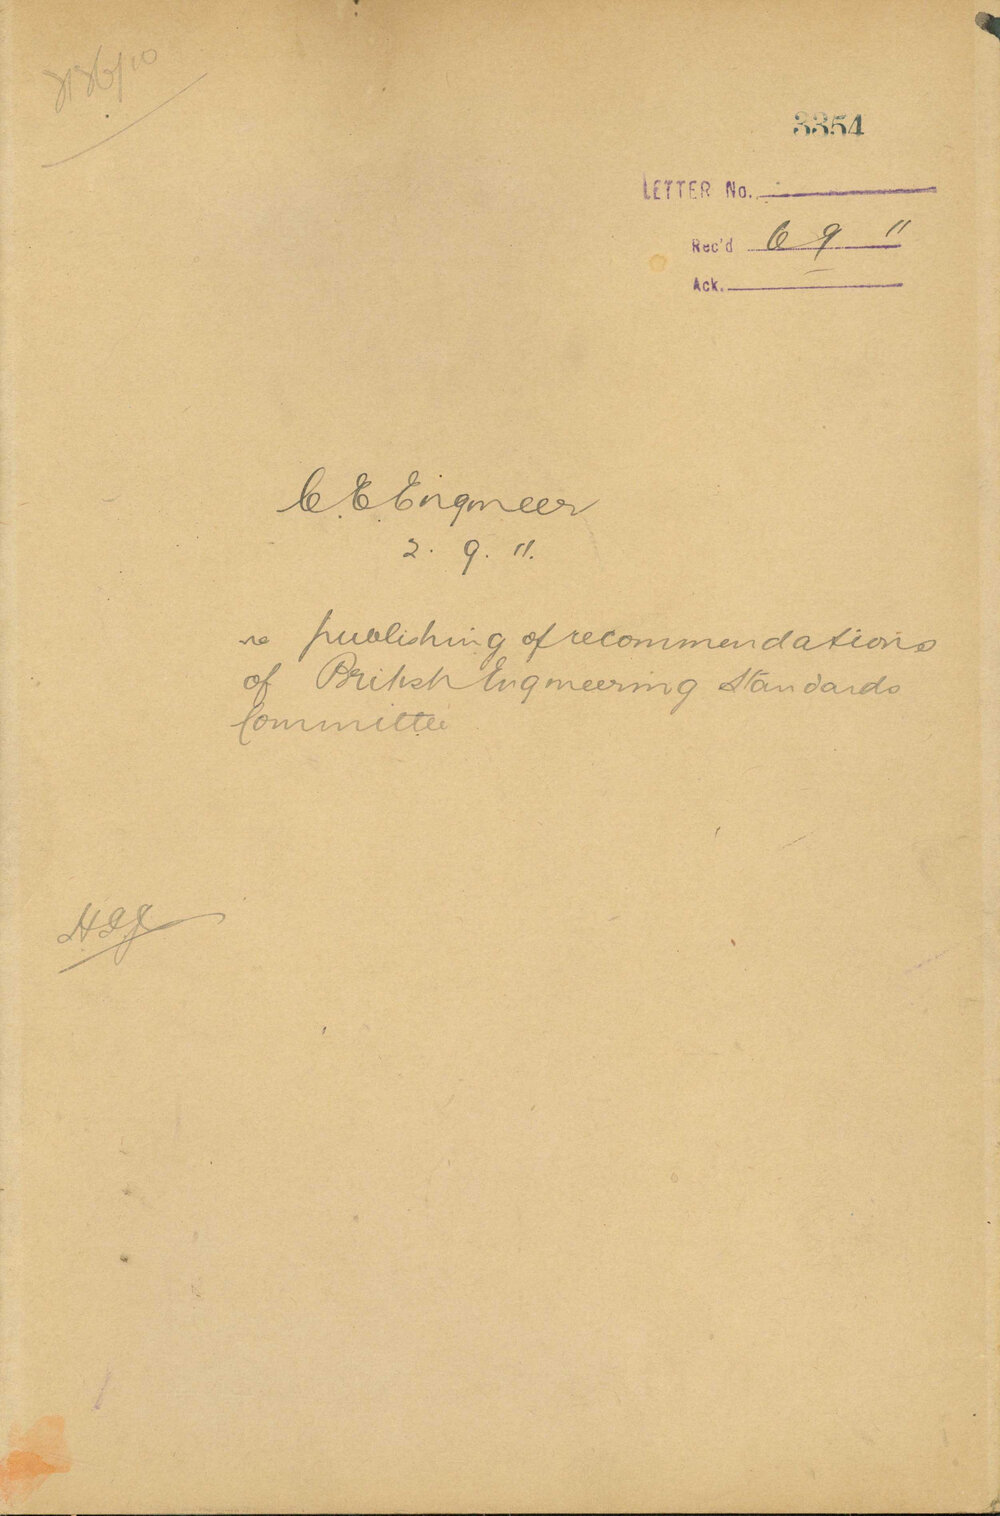 3354
LETTER No.
Rec'd 6 9 11
Ack.
C. E. Engineer
2. 9. 11.
re publishing of recommendations
of British Engineering Standards
Committee